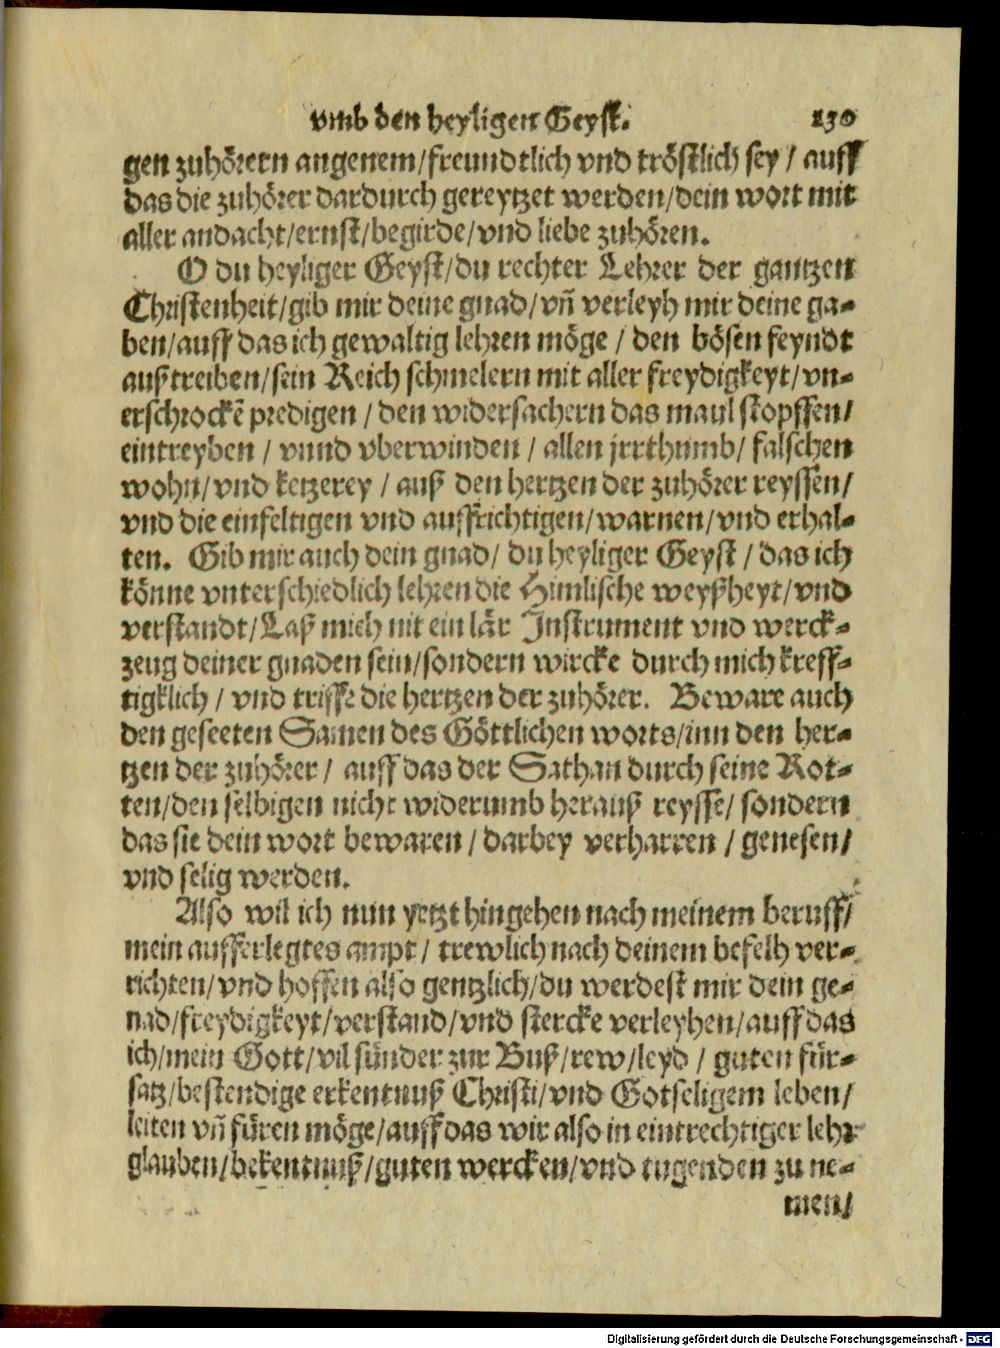 vmb den heyligen Geyst. 130
gen zuhörern angenem/freundtlich vnd tröstlich sey / auff
das die zuhörer dardurch gereytzet werden/dein wort mit
aller andacht/ernst/begirde/vnd liebe zuhören.
O du heyliger Geyst/du rechter Lehrer der gantzen
Christenheit/gib mir deine gnad/vñ verleyh mir deine ga-
ben/auff das ich gewaltig lehren möge / den bösen feyndt
außtreiben/sein Reich schmelern mit aller freydigkeyt/vn-
erschrockẽ predigen / den widersachern das maul stopffen/
eintreyben / vnnd vberwinden / allen jrrthumb/ falschen
wohn/vnd ketzerey / auß den hertzen der zuhörer reyssen/
vnd die einfeltigen vnd auffrichtigen/warnen/vnd erhal-
ten. Gib mir auch dein gnad/ du heyliger Geyst / das ich
könne vnterschiedlich lehren die Himlische weyßheyt/vnd
verstandt/Laß mich nit ein lär Instrument vnd werck-
zeug deiner gnaden sein/sondern wircke durch mich kreff-
tigklich / vnd triffe die hertzen der zuhörer. Beware auch
den geseeten Samen des Göttlichen worts/inn den her-
tzen der zuhörer / auff das der Sathan durch seine Rot-
ten/den selbigen nicht widerumb herauß reysse/ sondern
das sie dein wort bewaren / darbey verharren / genesen/
vnd selig werden.
Also wil ich nun yetzt hingehen nach meinem beruff/
mein aufferlegtes ampt / trewlich nach deinem befelh ver-
richten/vnd hoffen also gentzlich/du werdest mir dein ge-
nad/freydigkeyt/verstand/vnd stercke verleyhen/auff das
ich/mein Gott/vil sünder zur Buß/rew/leyd / guten für-
satz/bestendige erkentnuß Christi/vnd Gotseligem leben/
leiten vñ füren möge/auff das wir also in eintrechtiger lehr
glauben/bekentnuß/guten wercken/vnd tugenden zu ne-
men/
Digitalisierung gefördert durch die Deutsche Forschungsgemeinschaft - DFG